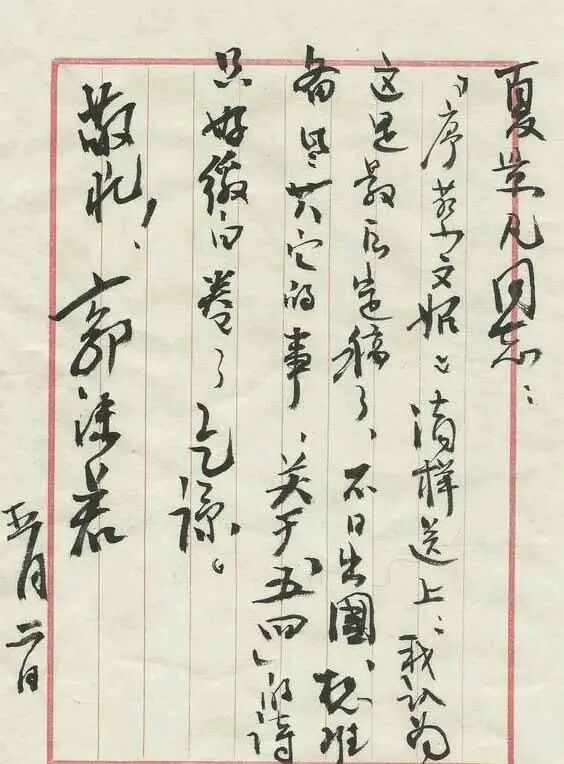 夏景凡同志：
「序蔡文姬」清样送上，我认为
这是最后定稿了、不日出國、想准
备些其它的事、关于「五四」的诗
只好缴白卷了乞谅。
敬礼！
郭沫若
五月二日